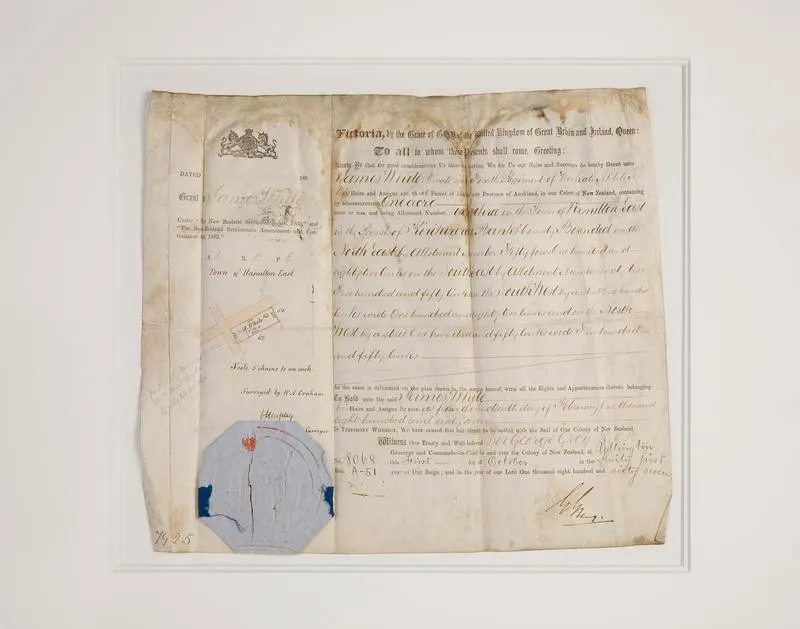 DATED 186
Grant James White
Under "The New Zealand Settlements Act, 1863," and
"The New Zealand Settlements Amendment and Con-
tinuance Act, 1865."
A. R. P.
Town of Hamilton East
J. White
Scale 5 chains to an inch
Surveyed by W. A. Graham
Surveyor
No. 8068
A-51
7925
Victoria, by the Grace of GOD of the United Kingdom of Great Britain and Ireland, Queen:
To all to whom these Presents shall come, Greeting:
Know Ye that for good considerations Us thereunto moving We for Us our Heirs and Successors do hereby Grant unto
James White Private in Fourth Regiment of Waikato Militia
his Heirs and Assigns all that Parcel of Land in our Province of Auckland, in our Colony of New Zealand, containing
by admeasurement One acre
more or less, and being Allotment Number in the Town of Hamilton East
in the Parish of County Bounded on the
North East by Allotment Number Fifty four One hundred and
eighty five links on the South East by Allotment Number
Five hundred and fifty links on the South West by a road One hundred
links wide One hundred and eighty two links and on the North
West by a street One hundred and fifty links wide Five hundred
and fifty links
As the same is delineated on the plan drawn in the margin hereof, with all the Rights and Appurtenances thereto belonging:
To Hold unto the said James White
his Heirs and Assigns for ever as from the day of February One thousand
eight hundred and sixty seven
In Testimony Whereof, We have caused this our Grant to be sealed with the Seal of Our Colony of New Zealand.
Witness Our Trusty and Well-beloved Sir George Grey
Governor and Commander-in-Chief in and over the Colony of New Zealand, at Wellington
this First day of October in the thirty first
year of Our Reign; and in the year of our Lord One thousand eight hundred and sixty seven
G. Grey